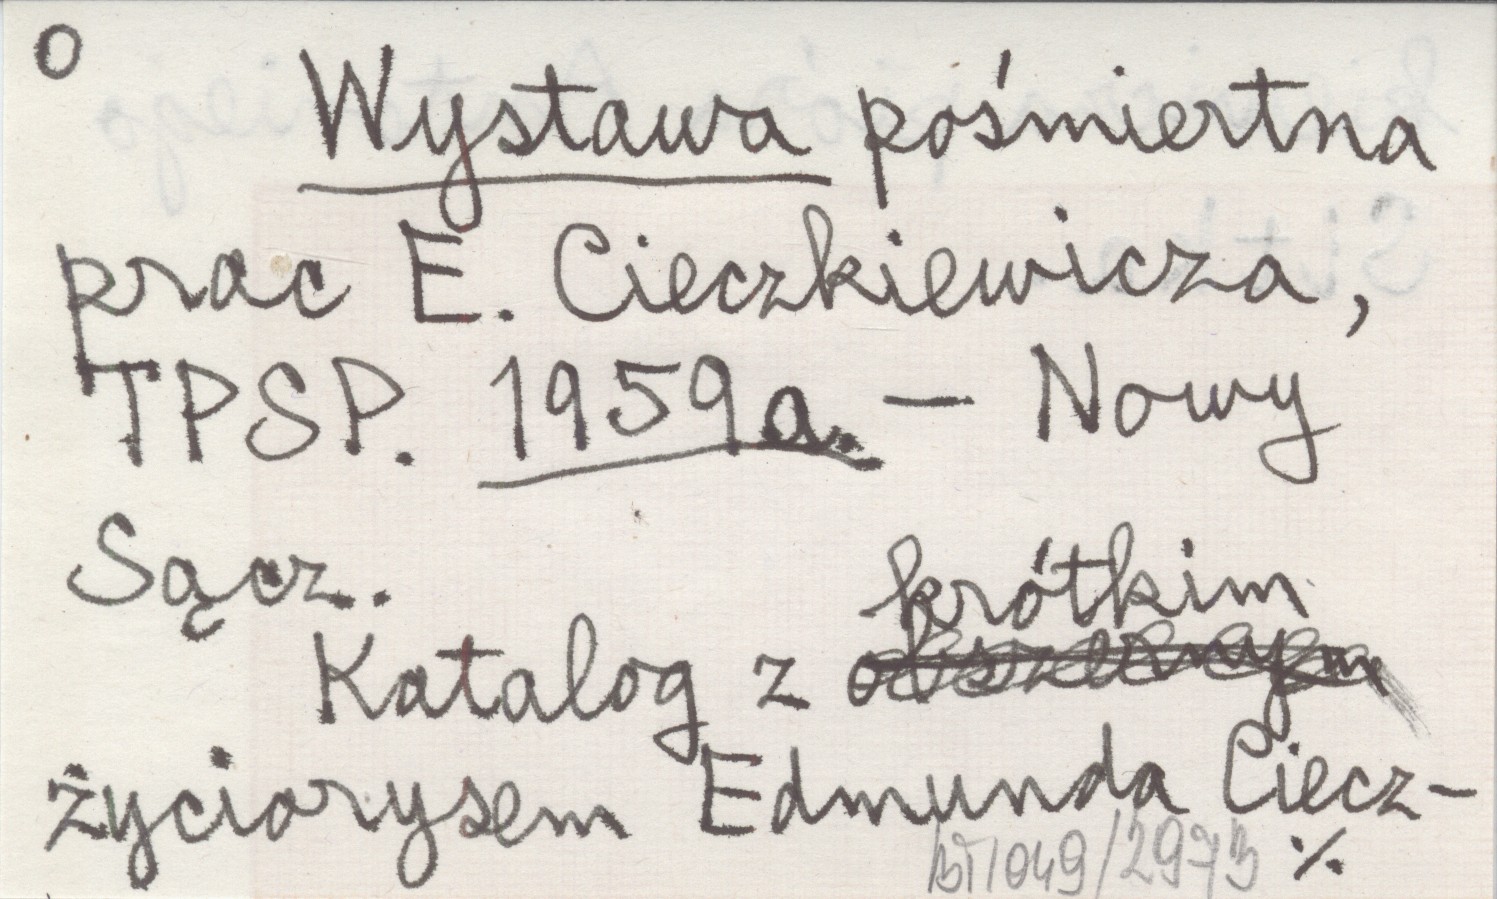 O
Wystawa pośmiertna
prac E. Cieczkiewicza,
TPSP. 1959 a. — Nowy
Sącz.
krótkim
Katalog z obszernym
życiorysem Edmunda Ciecz-
049/2973 ⁒